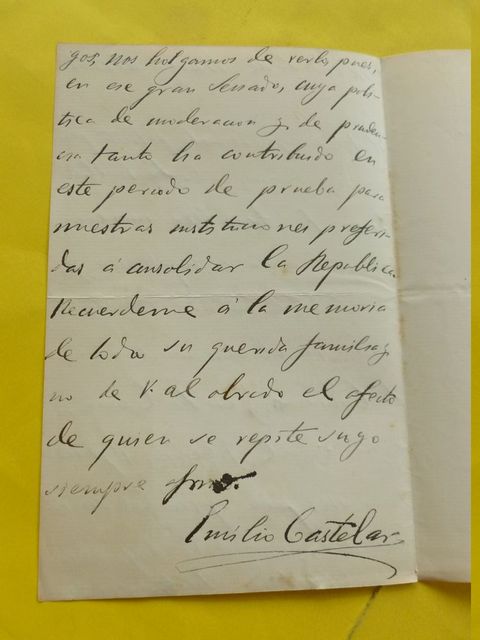 gos, nos holgamos de verlo pues,
en ese gran Senado, cuya polí-
tica de moderacion y de pruden-
cia tanto ha contribuido en
este periodo de prueba para
nuestras instituciones preferi-
das á consolidar la Republica.
Recuerdeme á la memoria
de toda su querida familia y
no de V. al olvido el afecto
de quien se repite suyo
siempre
Emilio Castelar